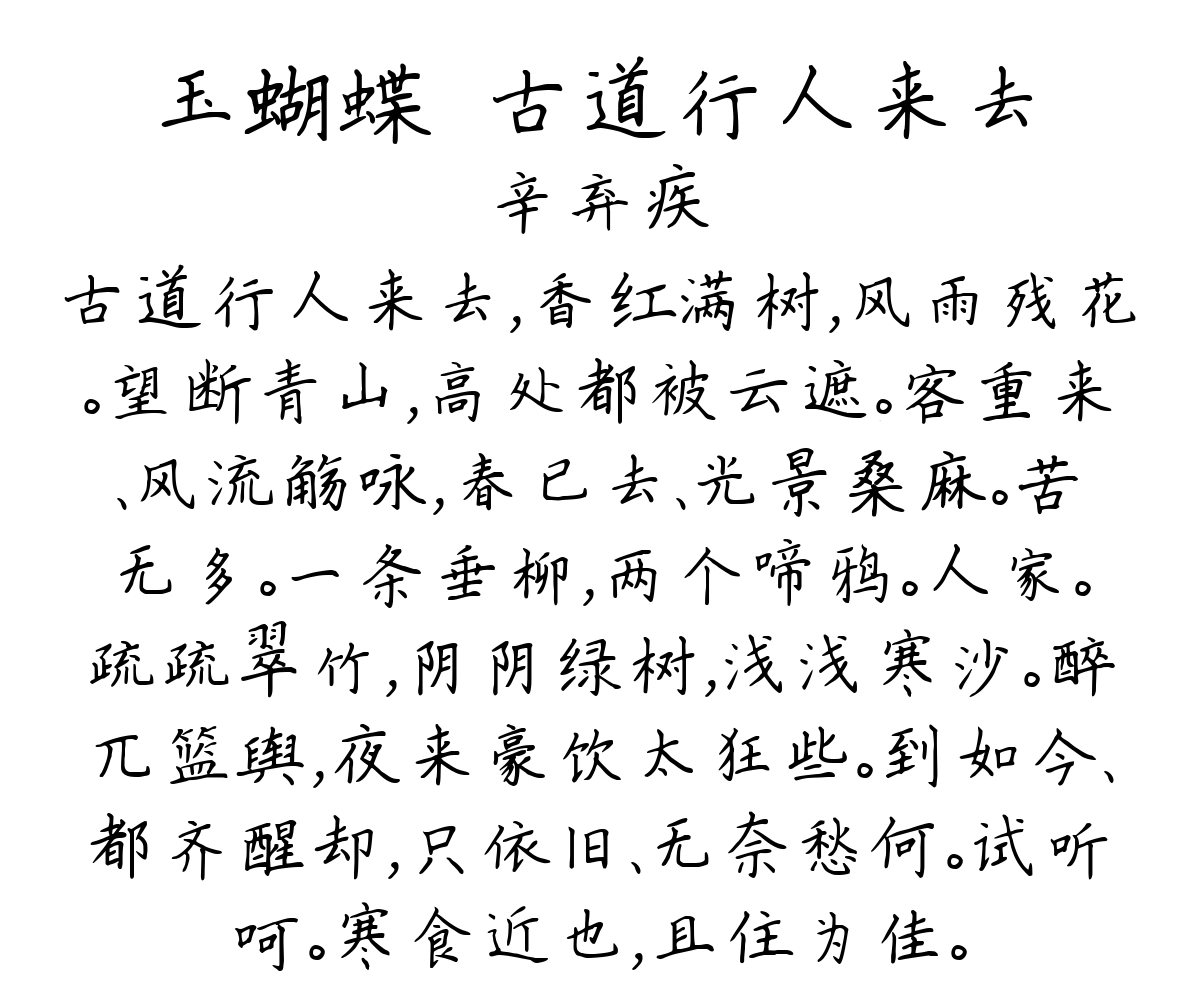 玉蝴蝶 古道行人来去
辛弃疾
古道行人来去,香红满树,风雨残花
。望断青山,高处都被云遮。客重来
、风流觞咏,春已去、光景桑麻。苦
无多。一条垂柳,两个啼鸦。人家。
疏疏翠竹,阴阴绿树,浅浅寒沙。醉
兀篮舆,夜来豪饮太狂些。到如今、
都齐醒却,只依旧、无奈愁何。试听
呵。寒食近也,且住为佳。